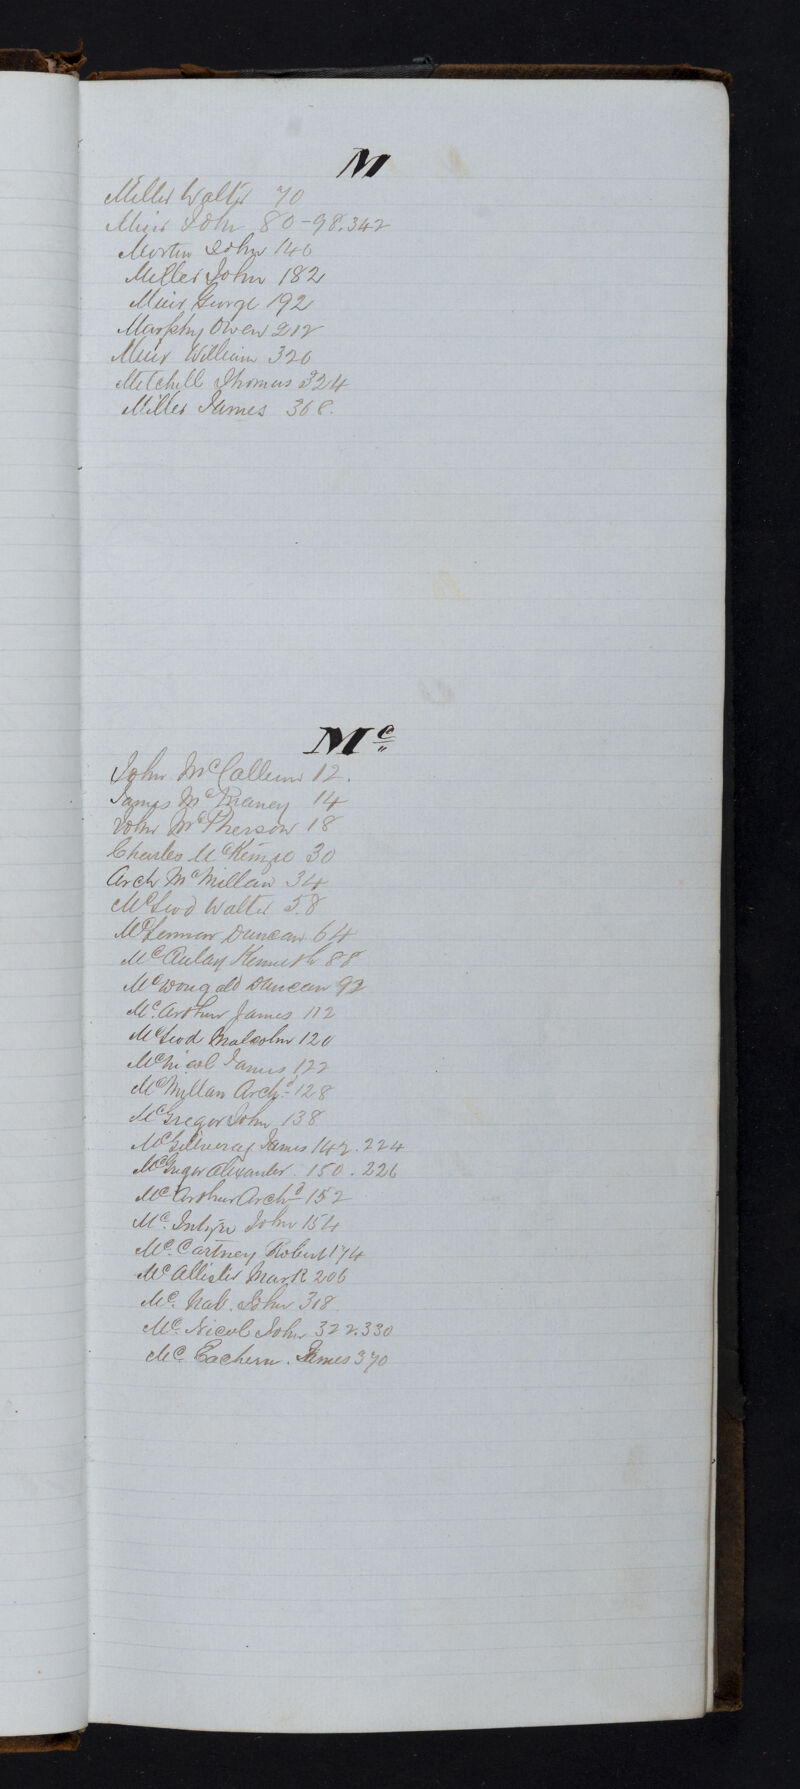 M
Miller Walter 70
Muir John 80-98.342
Morton John 140
Miller John 182
Muir George 192
Murphy Owen 212
Muir William 320
Mitchell Thomas 324
Miller James 368.
Mc
John McCallum 12.
James Mc 14
John McPherson 18
Charles McKenzie 30
Arch McMillan 34
McLeod Walter 58
McLennan Duncan 64
McAulay Kenneth 88
McDougald Duncan 92
Mc.Arthur James 112
McLeod Malcolm 120
McNicol James 122
McMyllan Archd 128
McGregor John 138
McGillveray James 142.224
McGregor Alexander 150.226
McArthur Archd 152
Mc.Intyre John 154
Mc.Cartney Robert 174
McAllister Mark 206
Mc.Nab. John 318
Mc.Nicol John 322.330
McEachern. James 370